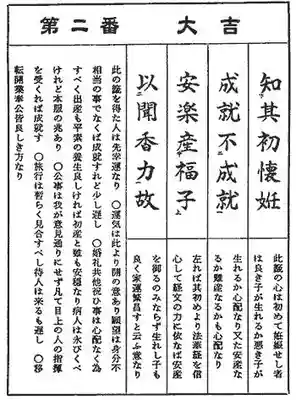 第二番 大吉
知其初懐妊
成就不成就
安楽産福子
以聞香力故
此籤の心は初めて妊娠せし者
は良き子が生れるか悪き子が
生れるか心配なり又た安産な
るか難産なるかも心配なり
左れば其初めより法華経を信
心して経文の力に依ねば安産
を御るのみならず生れし子も
良く家運繁昌すと云ふ意なり
此の籤を得た人は先幸運なり 〇運気は此より開の意あり願望は身分不
相当の事でなくば成就すれど少し遅し 〇婚礼共他祝ひ事は心配なく為
すべく出産も平素の養生良しければ初産と雖も安穏なり病人は永びくべ
けれど本服の兆あり 〇公事は我が意見通りにせず凡て目上の人の指揮
を受くれば成就す 〇旅行は暫らく見合すべし待人は来るも遅し 〇移
転開業奉公皆良しき方なり